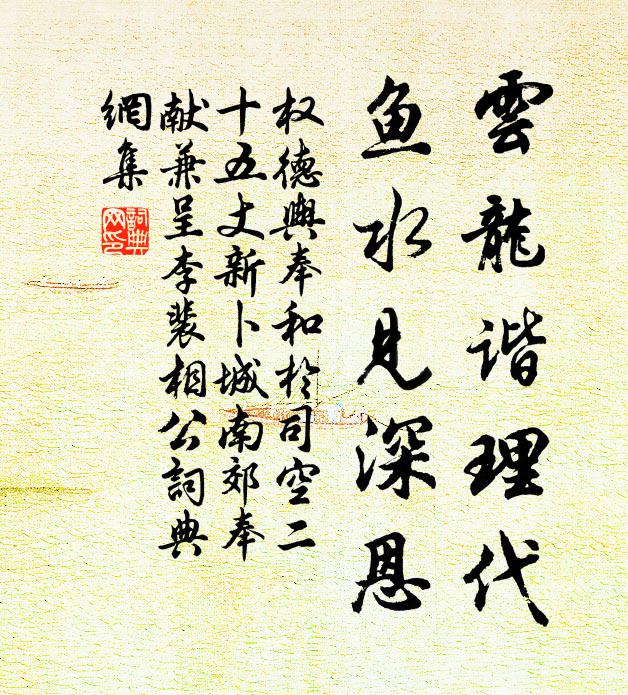 雲龍谐理代
鱼水見深恩
权德輿奉和於司空二
十五丈新卜城南郊奉
献兼呈李裴相公詞典
網集
詞典
网印